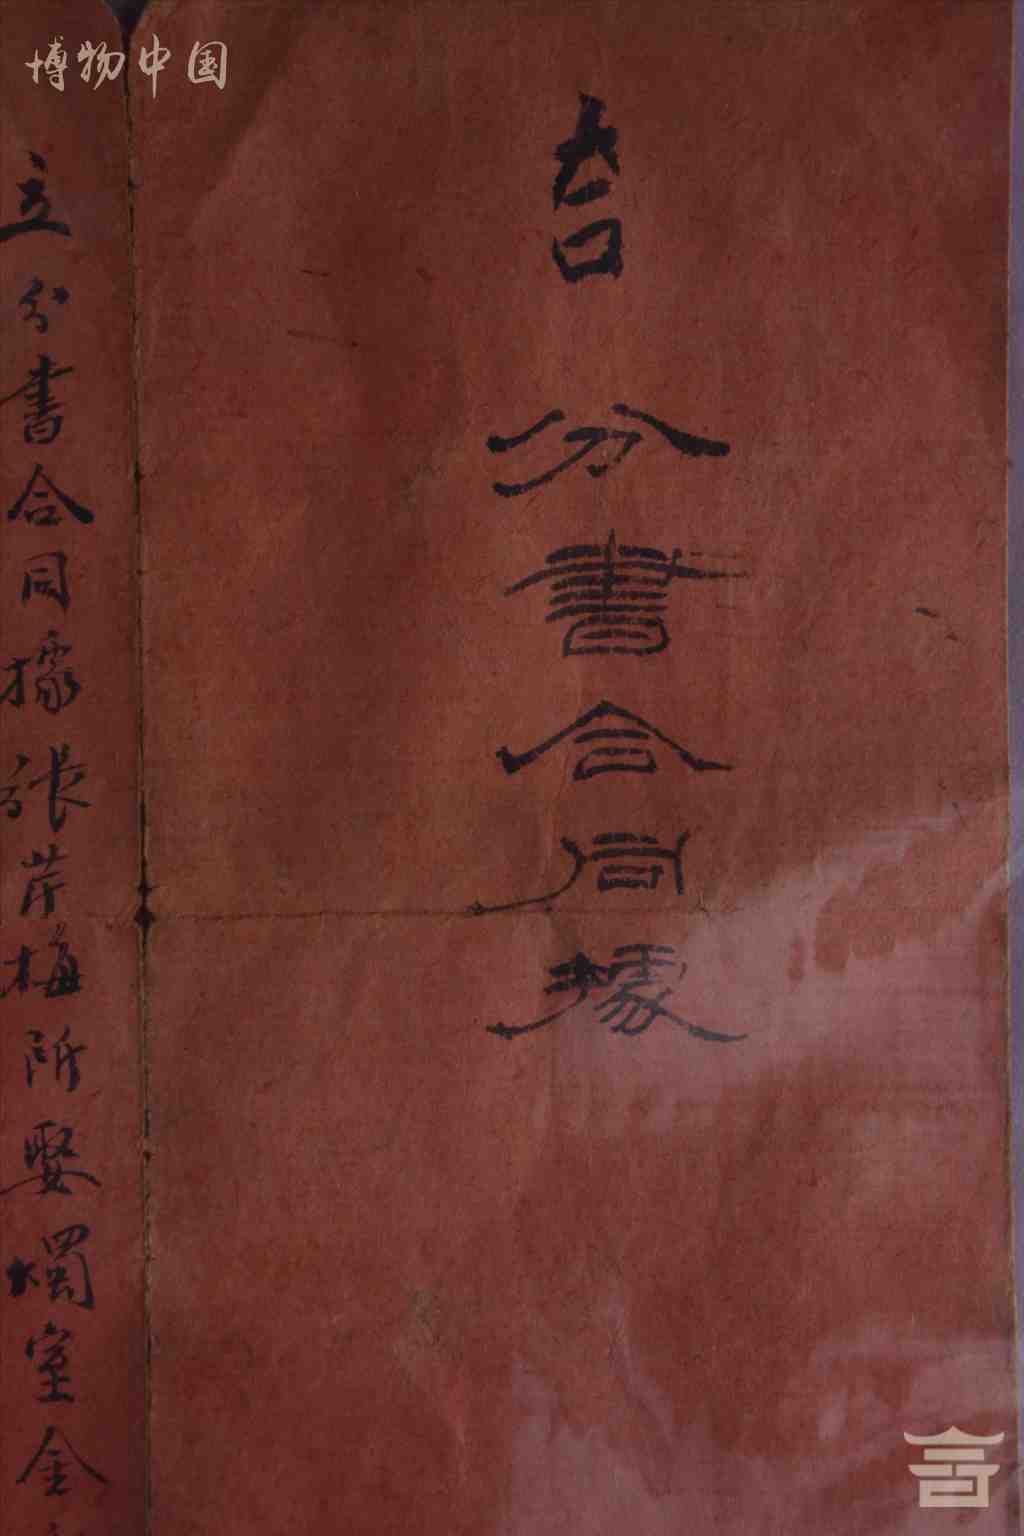 博物中国
吉
分書合同據
立分書合同據張芹梅所娶燭室金